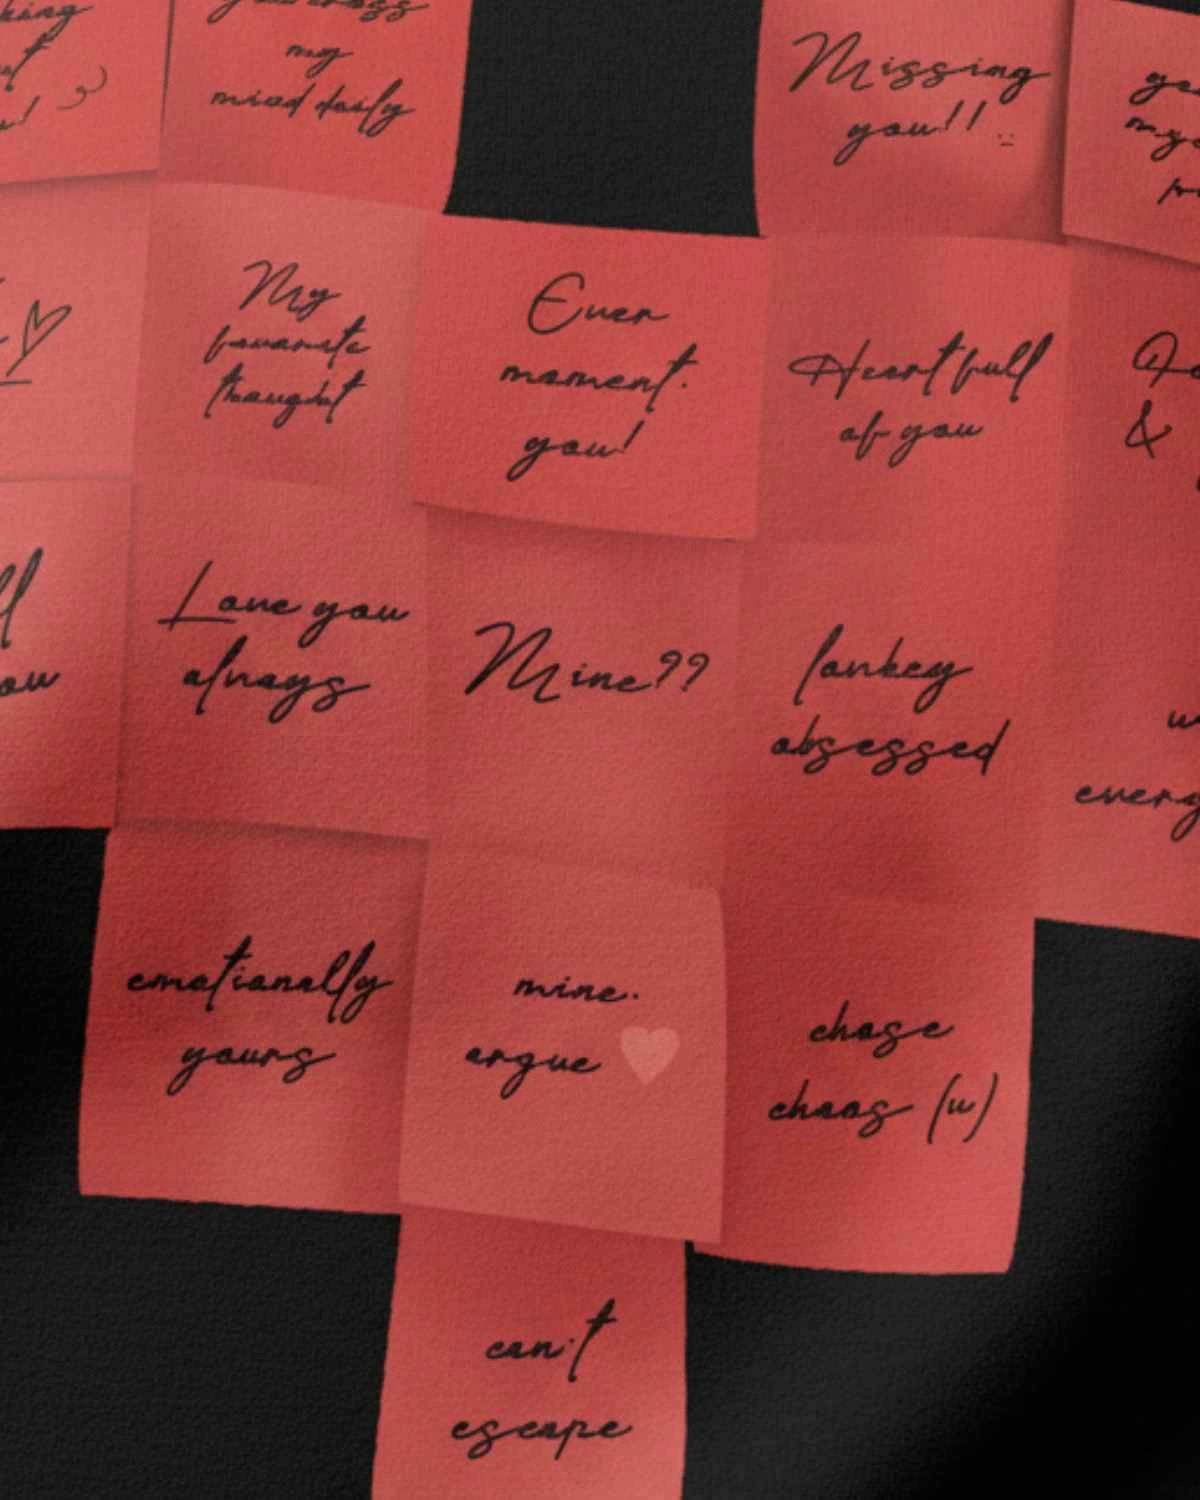 my
mind daily
Missing
you!!
My
favourite
thought
Ever
moment.
you!
Heart full
of you
&
Love you
always
Mine??
lowkey
obsessed
emotionally
yours
mine.
argue
chose
chaos (u)
can't
escape